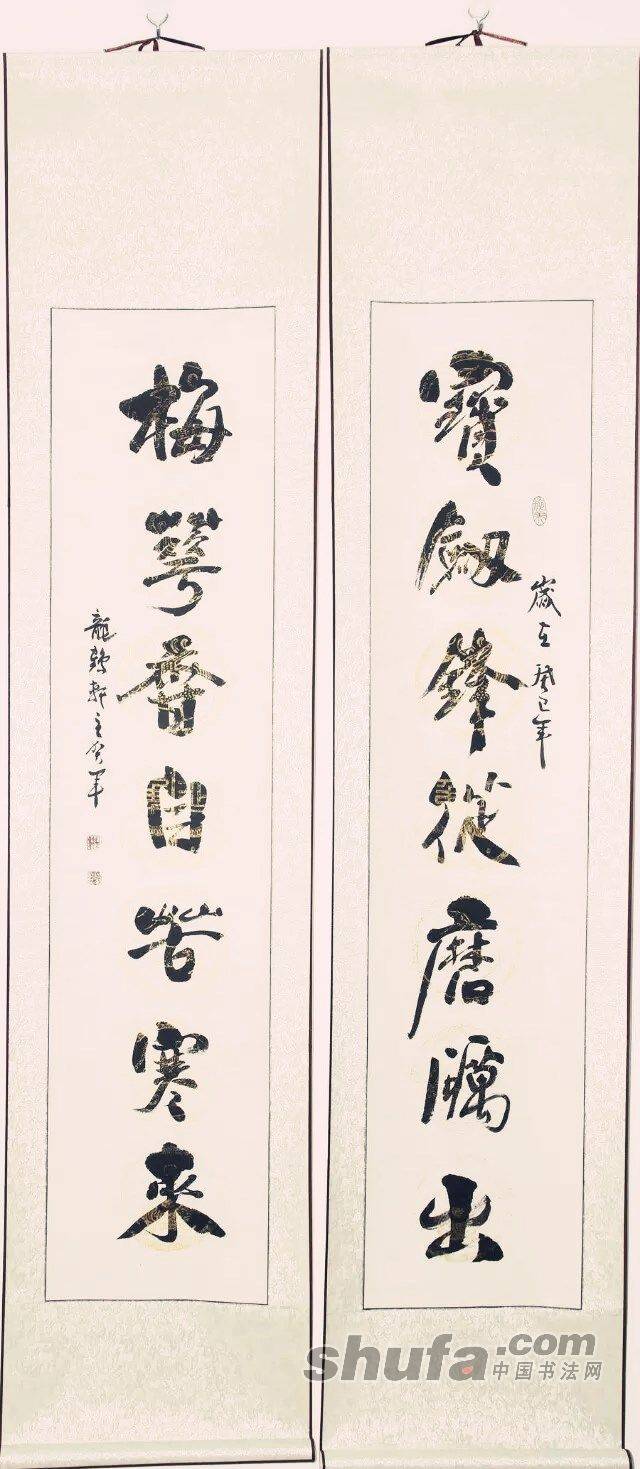 寶劔鋒從磨礪出
歲在癸巳年
梅萼香自苦寒來
龍靜軒主賀軍
shufa.com
中国书法网